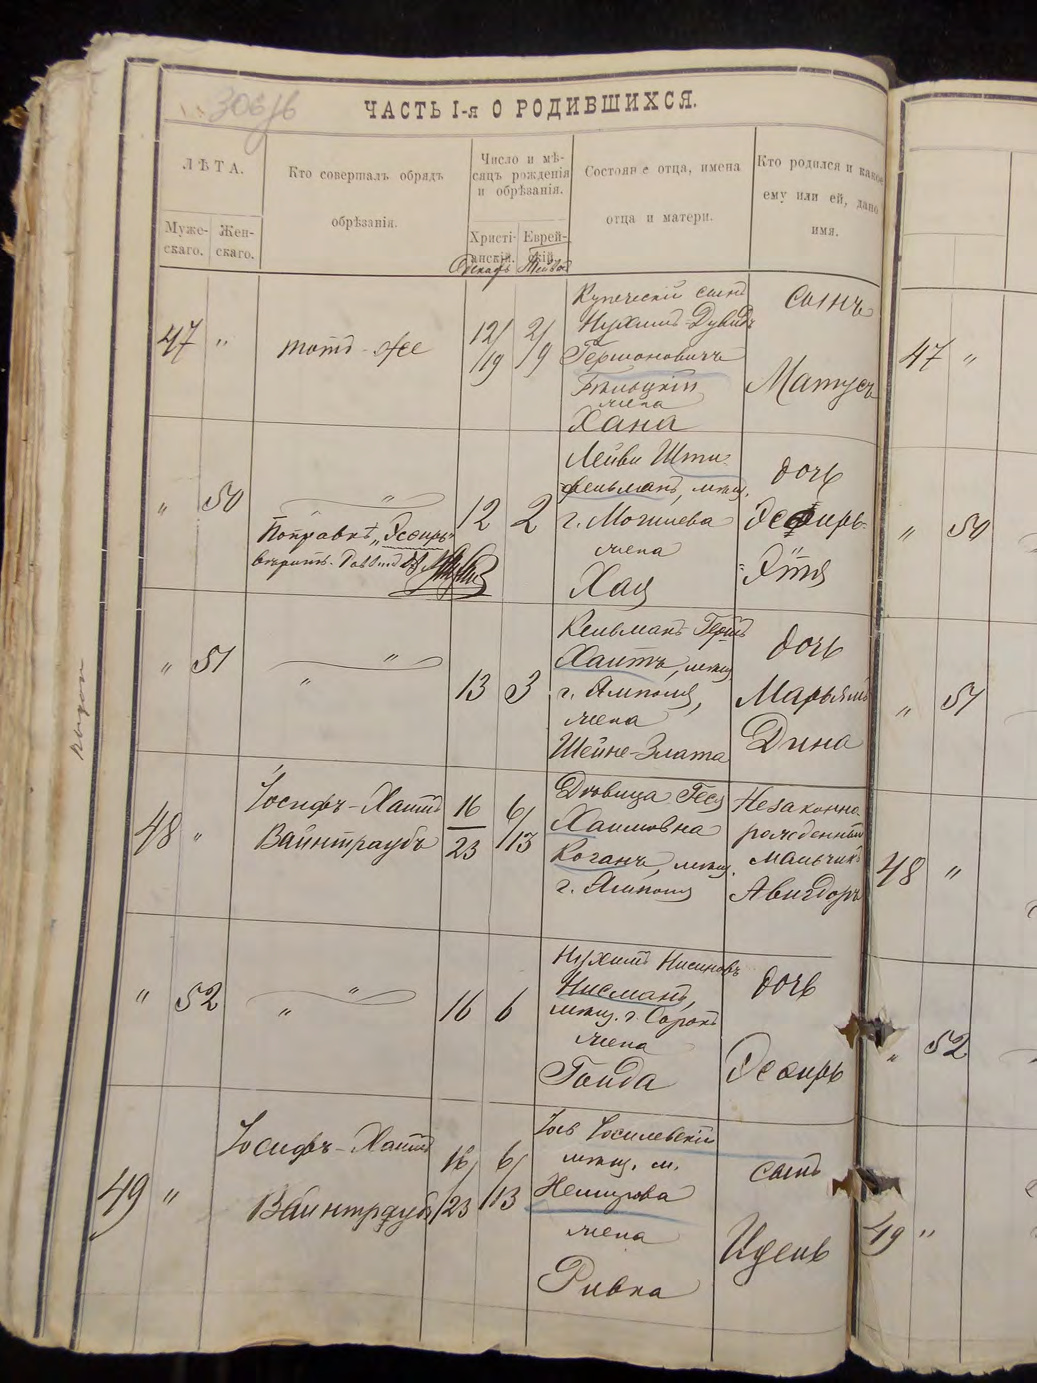 306
ЧАСТЬ I-я О РОДИВШИХСЯ.
ЛѢТА.
Муже-
скаго.
Жен-
скаго.
Кто совершалъ обрядъ
обрѣзанія.
Число и мѣ-
сяцъ рожденія
и обрѣзанія.
Христі-
анскій.
Еврей-
скій.
Состояніе отца, имена
отца и матери.
Кто родился и како
ему или ей, дано
имя.
Декабрь
47 "
тотъ-же
12/19
2/9
Купеческій сынъ
Нухимъ-Дувидъ
Гершоновичъ
жена
Хана
сынъ
Матусъ
47 "
" 50
"
Поправкѣ „Эсѳирь"
вѣрить.
12
2
Лейви Шти-
фельманъ, мѣщ.
г. Могилева
жена
Хая
дочь
Эсѳирь-
" 50
" 51
"
"
13
3
Кельманъ Гершъ
Хаитъ, мѣщ.
г. Ямполя,
жена
Шейне-Злата
дочь
Марьямъ
Дина
" 51
48 "
Іосифъ-Хаимъ
Вайнтраубъ
16
23
6/13
Дѣвица Геся
Хаимовна
Коганъ, мѣщ.
г. Ямполя
Незаконно-
рожденный
мальчикъ
Авигдоръ
48 "
" 52
"
"
16
6
Нухимъ Нисиновъ
Нисманъ,
мѣщ. г. Сорокъ
жена
Гоида
дочь
Эсѳирь
" 52
49 "
Іосифъ-Хаимъ
Вайнтраубъ
16/23
6/13
Іосилевскій
мѣщ. м.
Немирова
жена
Ривка
сынъ
Идель
49 "